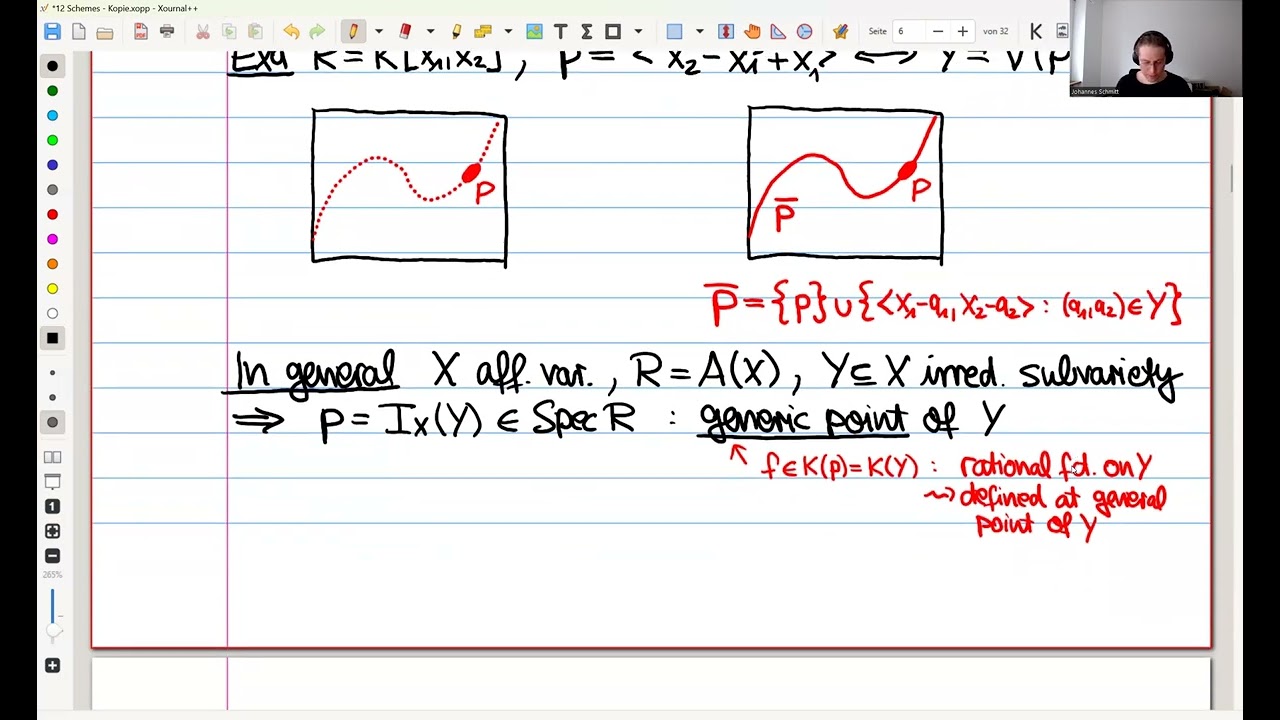 *12 Schemes - Kopie.xopp - Xournal++
Seite 6 von 32
Johannes Schmitt
Exa R = K[x₁,x₂], P = <x₂-x₁³+x₁> ⟷ Y = V(P
P
P̄ P
P̄ = {P} ∪ {<x₁-a₁, x₂-a₂> : (a₁,a₂) ∈ Y}
In general X aff. var., R = A(X), Y ⊆ X irred. subvariety
⟹ P = I_X(Y) ∈ Spec R : generic point of Y
f ∈ K(P) = K(Y) : rational fct. on Y
⇝ defined at general
point of Y
1
265%